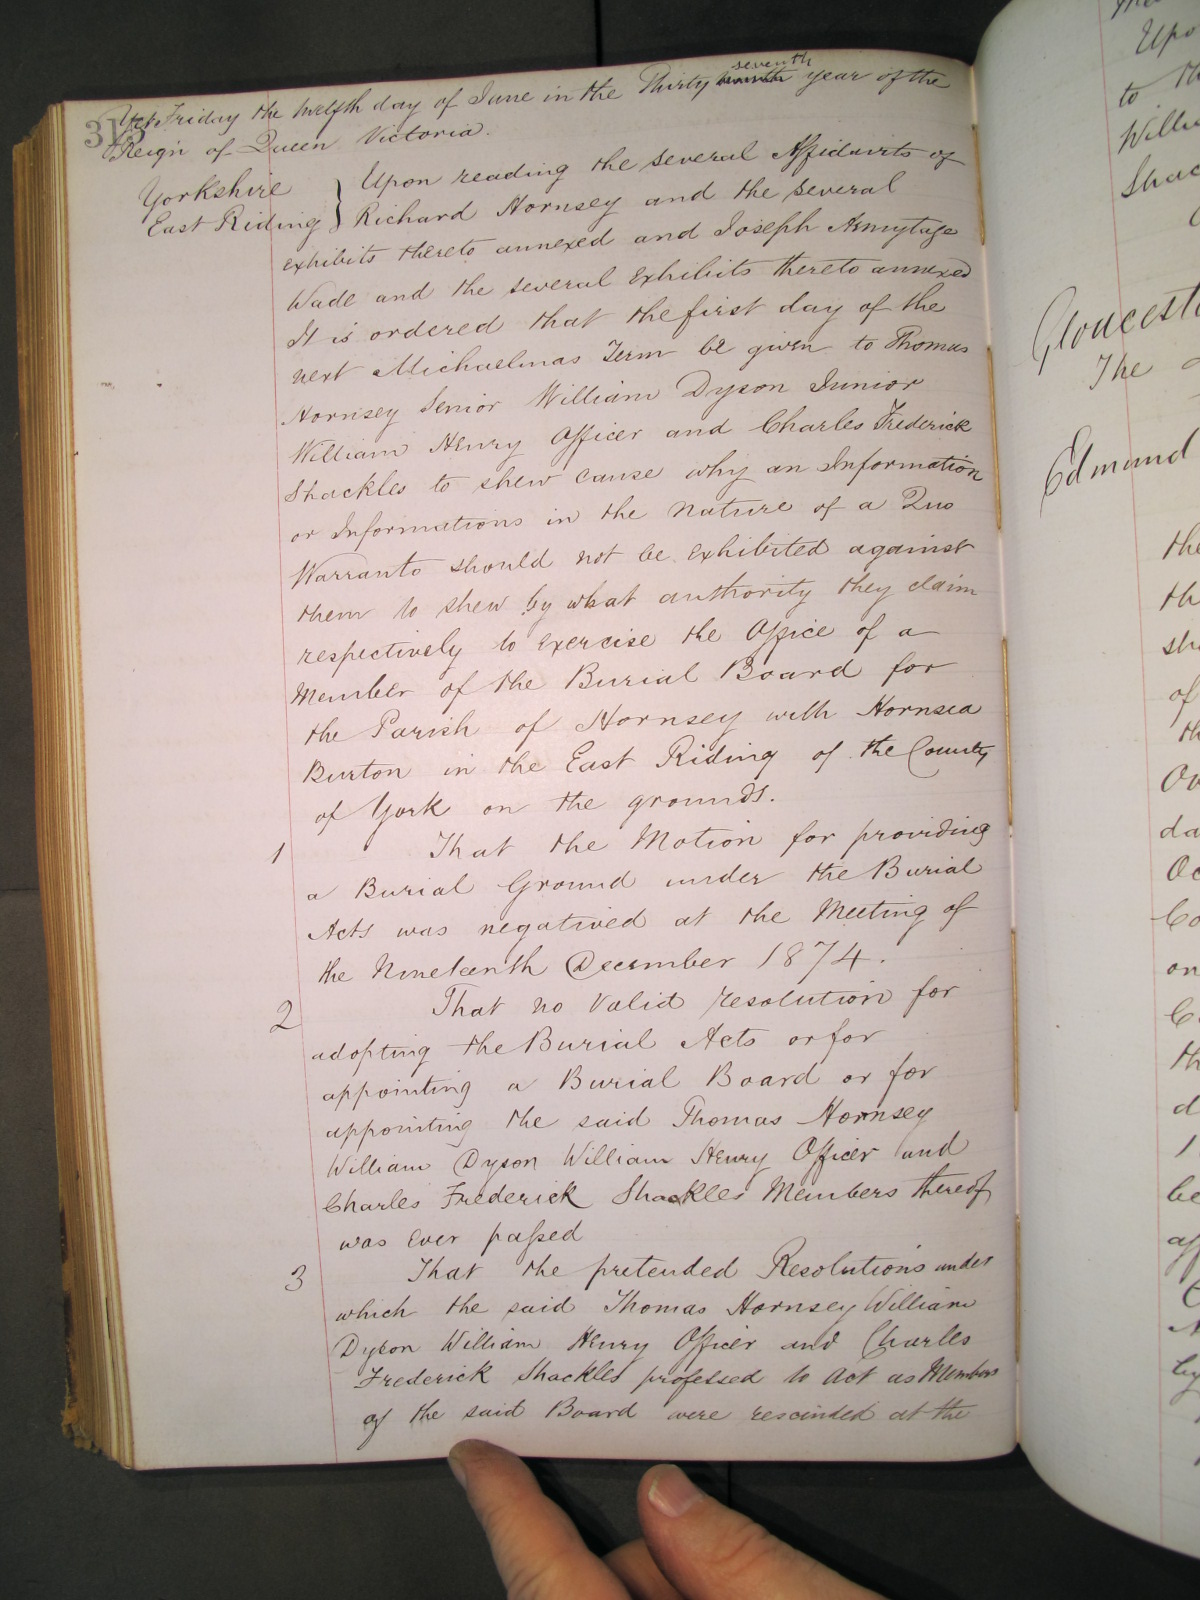 313
Yet Friday the twelfth day of June in the Thirty seventh year of the
Reign of Queen Victoria.
Yorkshire } Upon reading the several Affidavits of
East Riding } Richard Hornsey and the several
exhibits thereto annexed and Joseph Armytage
Wade and the several exhibits thereto annexed
It is ordered that the first day of the
next Michaelmas Term be given to Thomas
Hornsey Senior William Dyson Junior
William Henry Officer and Charles Frederick
Shackles to shew cause why an Information
or Informations in the nature of a Quo
Warranto should not be exhibited against
them to shew by what authority they claim
respectively to exercise the Office of a
Member of the Burial Board for
the Parish of Hornsey with Hornsea
Burton in the East Riding of the County
of York on the grounds.
1 That the Motion for providing
a Burial Ground under the Burial
Acts was negatived at the Meeting of
the Nineteenth December 1874.
2 That no valid resolution for
adopting the Burial Acts or for
appointing a Burial Board or for
appointing the said Thomas Hornsey
William Dyson William Henry Officer and
Charles Frederick Shackles Members thereof
was ever passed
3 That the pretended Resolutions under
which the said Thomas Hornsey William
Dyson William Henry Officer and Charles
Frederick Shackles professed to act as Members
of the said Board were rescinded at the
Upo
to th
Willi
Shac
Gloucest
The
Edmund
the
th
sh
of
th
da
on
th
d
be